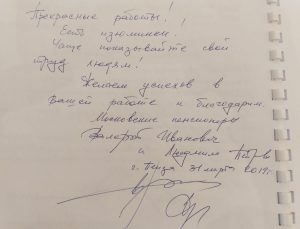 Прекрасные работы!
Есть изюминки!
Чаще показывайте свой
труд людям!
Желаем успехов в
Вашей работе и благодарим.
Московские пенсионеры
Валерий Иванович
и Людмила
г. Пенза 31 марта 2019г.